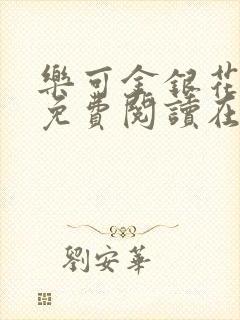 樂可金銀花
免費閱讀在
劉安華